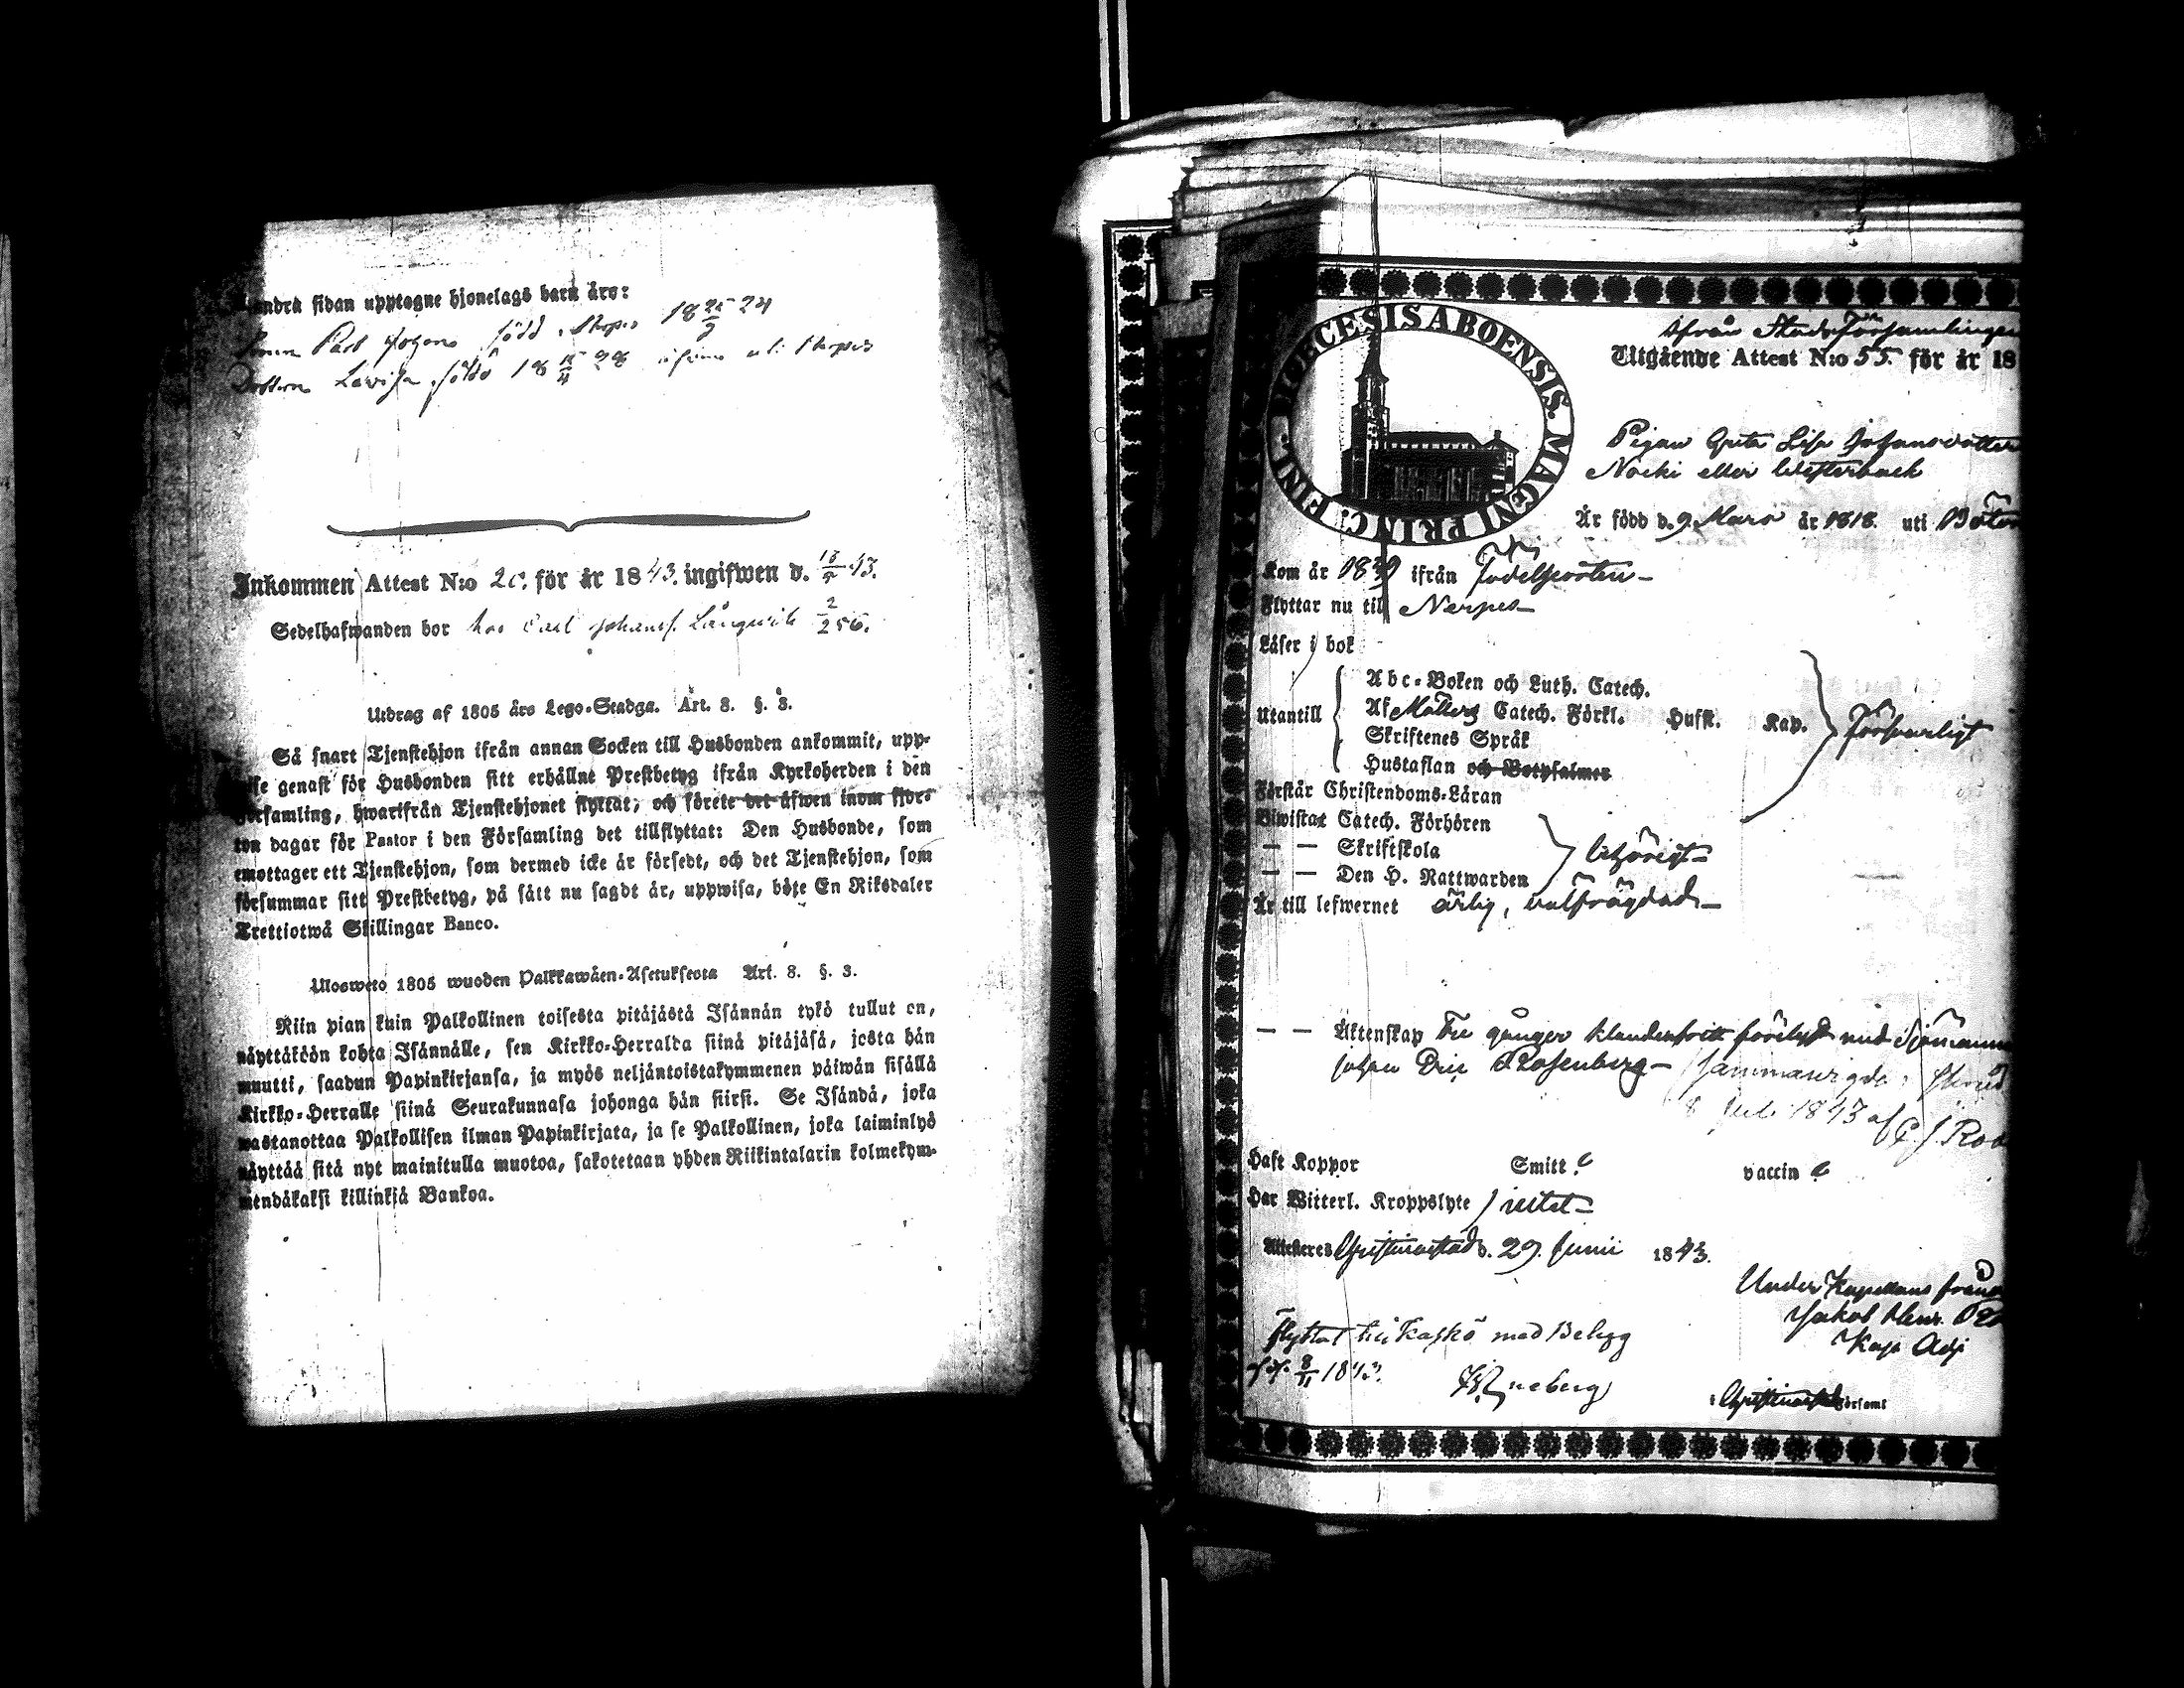 andra sidan upptagne hjonelags barn äro:
Sonen Carl Johans född i Nerpes 18 25/9 24
Dottren Lovisa, född 18 15/4 28 uti Nerpes
Inkommen Attest N:o 20. för år 1843. ingifwen d. 43.
Sedelhafwanden bor hos Carl Johans. Långwik 2/256.
Utdrag af 1805 års Lego-Stadga. Art. 8. §. 3.
Så snart Tjenstehjon ifrån annan Socken till Husbonden ankommit, upp-
te genast för Husbonden sitt erhållne Prestbetyg ifrån Kyrkoherden i den
Församling, hwarifrån Tjenstehjonet flyttat, och förete det äfwen inom fjor-
ton dagar för Pastor i den Församling det tillflyttat: Den Husbonde, som
emottager ett Tjenstehjon, som dermed icke är försedt, och det Tjenstehjon, som
försummar sitt Prestbetyg, på sätt nu sagdt är, uppwisa, böte En Riksdaler
Trettiotwå Skillingar Banco.
Ulosweto 1805 wuoden Palkkawäen-Asetuksesta Art. 8. §. 3.
Niin pian kuin Palkollinen toisesta pitäjästä Isännän tykö tullut on,
näyttäköön kohta Isännälle, sen Kirkko-Herralda siinä pitäjäsä, josta hän
muutti, saadun Papinkirjansa, ja myös neljäntoistakymmenen päiwän sisällä
Kirkko-Herralle siinä Seurakunnasa johonga hän siirsi. Se Isändä, joka
wastanottaa Palkollisen ilman Papinkirjata, ja se Palkollinen, joka laiminlyö
näyttää sitä nyt mainitulla muotoa, sakotetaan yhden Riikintalarin kolmekym-
mendäkaksi killinkiä Bankoa.
DIOECESIS ABOENSIS. MAGNI PRINC. FINL.
ifrån Stadsförsamlingen
Utgående Attest N:o 55. för år 18
Pigan Greta Lisa Johansdotter
Näcki eller Westerback
Är född d. 9. Mars år 1818. uti
Kom år 1839 ifrån Födelseorten
Flyttar nu till Nerpes
Läser i bok
Abc-Boken och Luth. Catech.
Utantill Af Möllers Catech. Förkl. Hufst. Kap. försvarligt
Skriftenes Språk
Hustaflan och Botpsalmer
Förstår Christendoms-Läran
Biwistat Catech. Förhören
— — Skriftskola behörigt
— — Den H. Nattwarden
Är till lefwernet ärlig, välfrägdad
— — Äktenskap Tre gånger klanderfritt förelyst med Sjömannen
Johan Eric Rosenberg — Sammanvigde
8 Juli 1843 af C. J. Roo
Haft Koppor Smitt. vaccin
Har Witterl. Kroppslyte intet
Attesteres Christinestad d. 29. Junii 1843.
Under Kapellans
Jakob Henr.
Kap. Adj
flyttat till Kaskö med Betyg
8/11 1843.
i Christinestads församl